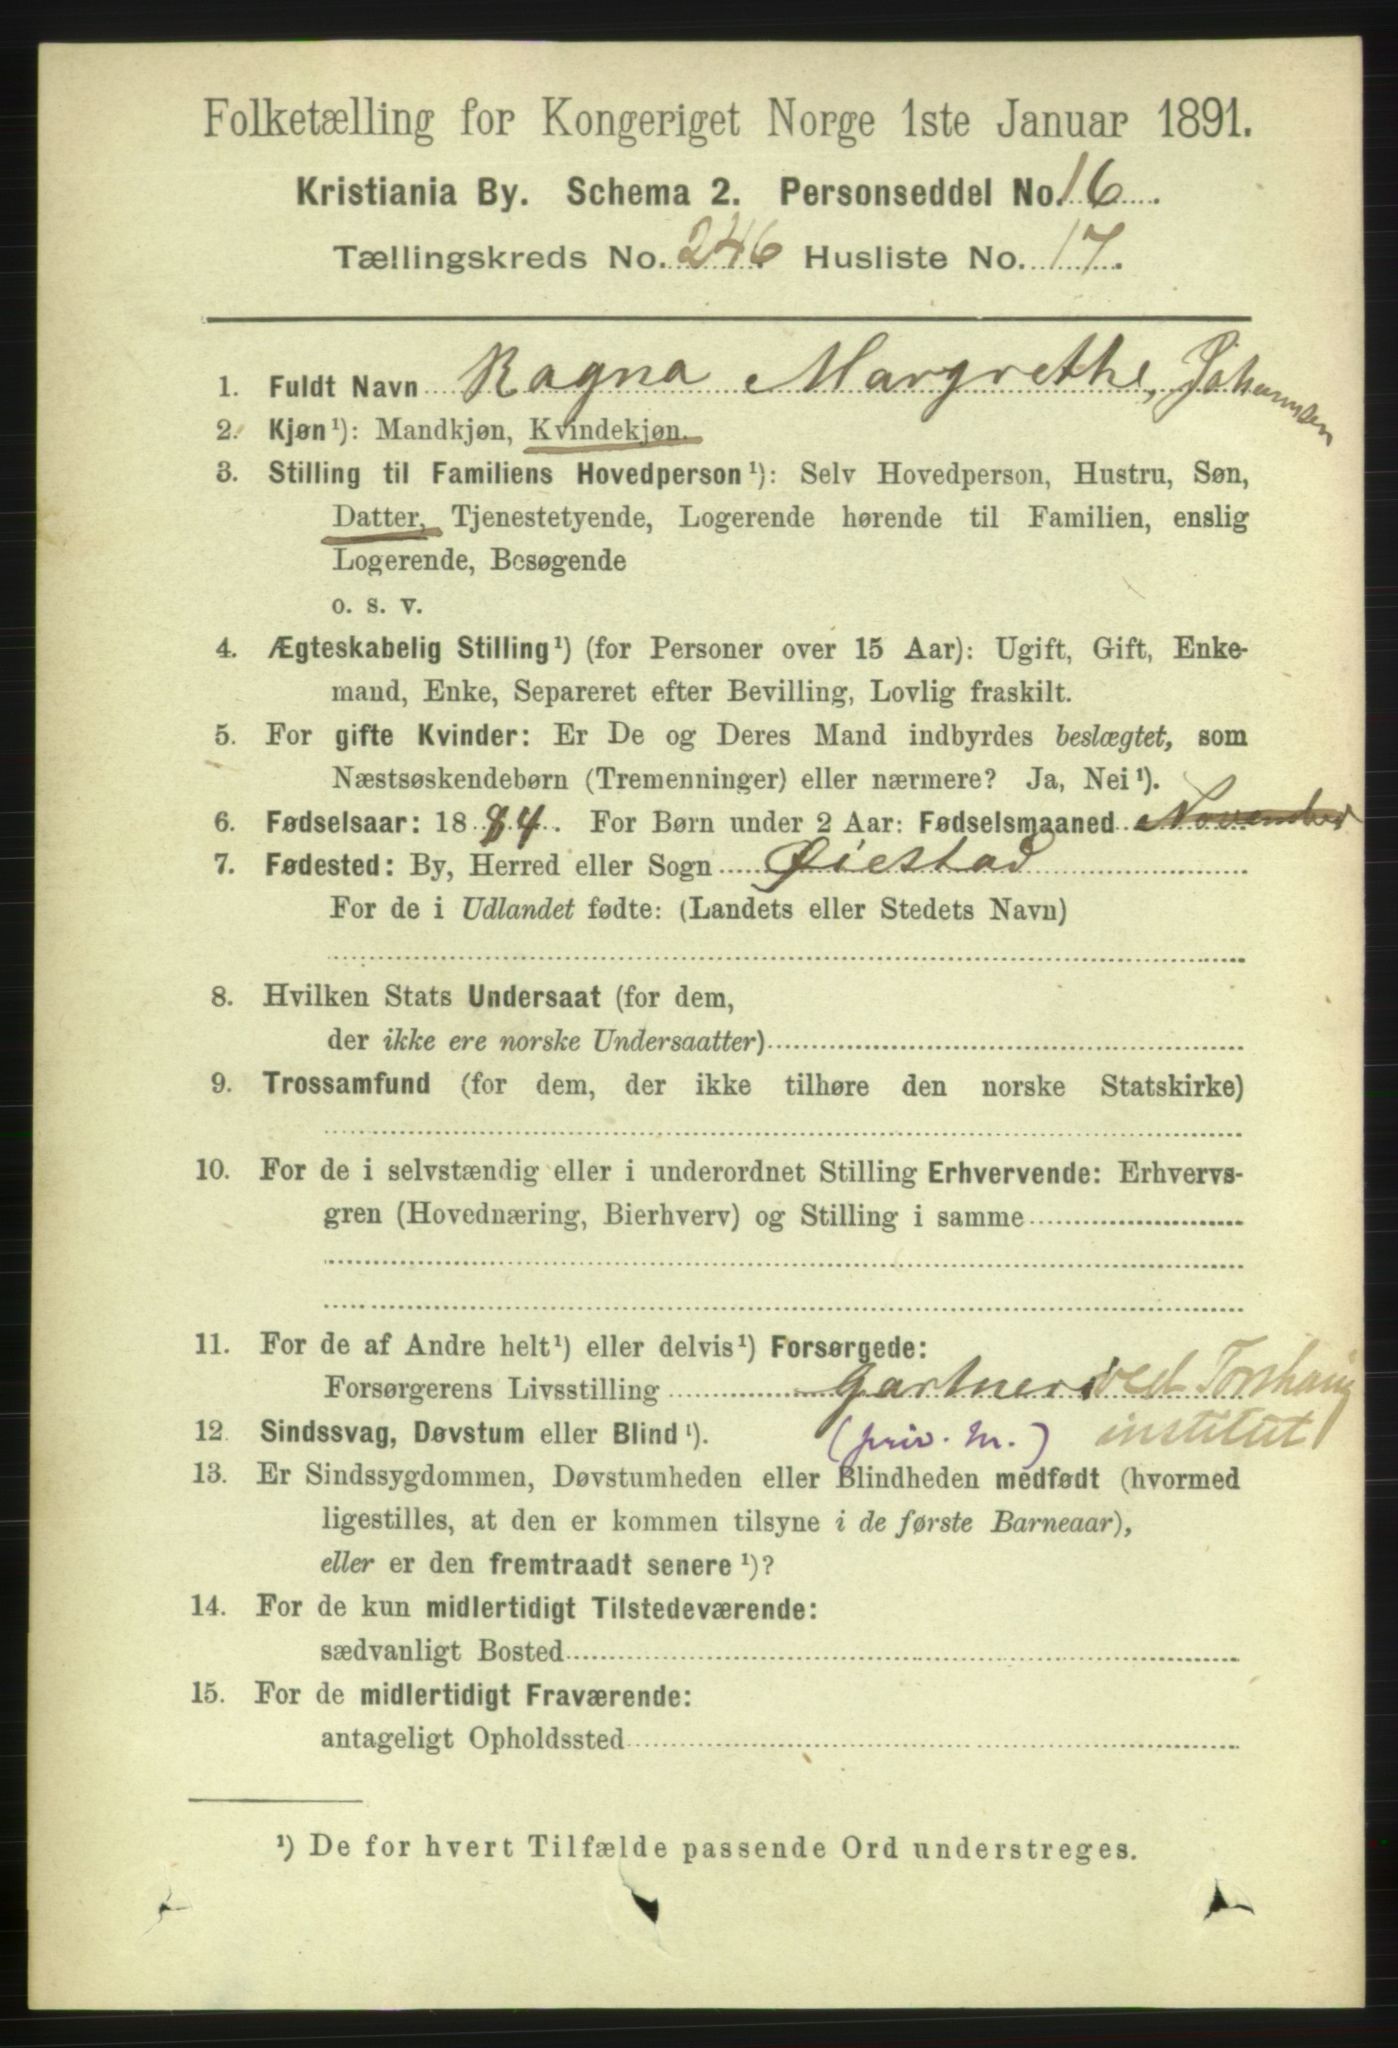 Folketælling for Kongeriget Norge 1ste Januar 1891.
Kristiania By. Schema 2. Personseddel No. 16.
Tællingskreds No. 246 Husliste No. 17.
1. Fuldt Navn Ragna Margrethe, Johannsen
2. Kjøn¹): Mandkjøn, Kvindekjøn.
3. Stilling til Familiens Hovedperson¹): Selv Hovedperson, Hustru, Søn,
Datter, Tjenestetyende, Logerende hørende til Familien, enslig
Logerende, Besøgende
o. s. v.
4. Ægteskabelig Stilling¹) (for Personer over 15 Aar): Ugift, Gift, Enke-
mand, Enke, Separeret efter Bevilling, Lovlig fraskilt.
5. For gifte Kvinder: Er De og Deres Mand indbyrdes beslægtet, som
Næstsøskendebørn (Tremenninger) eller nærmere? Ja, Nei¹).
6. Fødselsaar: 1884. For Børn under 2 Aar: Fødselsmaaned November
7. Fødested: By, Herred eller Sogn Øiestad
For de i Udlandet fødte: (Landets eller Stedets Navn)
8. Hvilken Stats Undersaat (for dem,
der ikke ere norske Undersaatter)
9. Trossamfund (for dem, der ikke tilhøre den norske Statskirke)
10. For de i selvstændig eller i underordnet Stilling Erhvervende: Erhvervs-
gren (Hovednæring, Bierhverv) og Stilling i samme
11. For de af Andre helt¹) eller delvis¹) Forsørgede:
Forsørgerens Livsstilling Gartner ved Torshaug
institut
(priv. M.)
12. Sindssvag, Døvstum eller Blind¹).
13. Er Sindssygdommen, Døvstumheden eller Blindheden medfødt (hvormed
ligestilles, at den er kommen tilsyne i de første Barneaar),
eller er den fremtraadt senere¹)?
14. For de kun midlertidigt Tilstedeværende:
sædvanligt Bosted
15. For de midlertidigt Fraværende:
antageligt Opholdssted
¹) De for hvert Tilfælde passende Ord understreges.